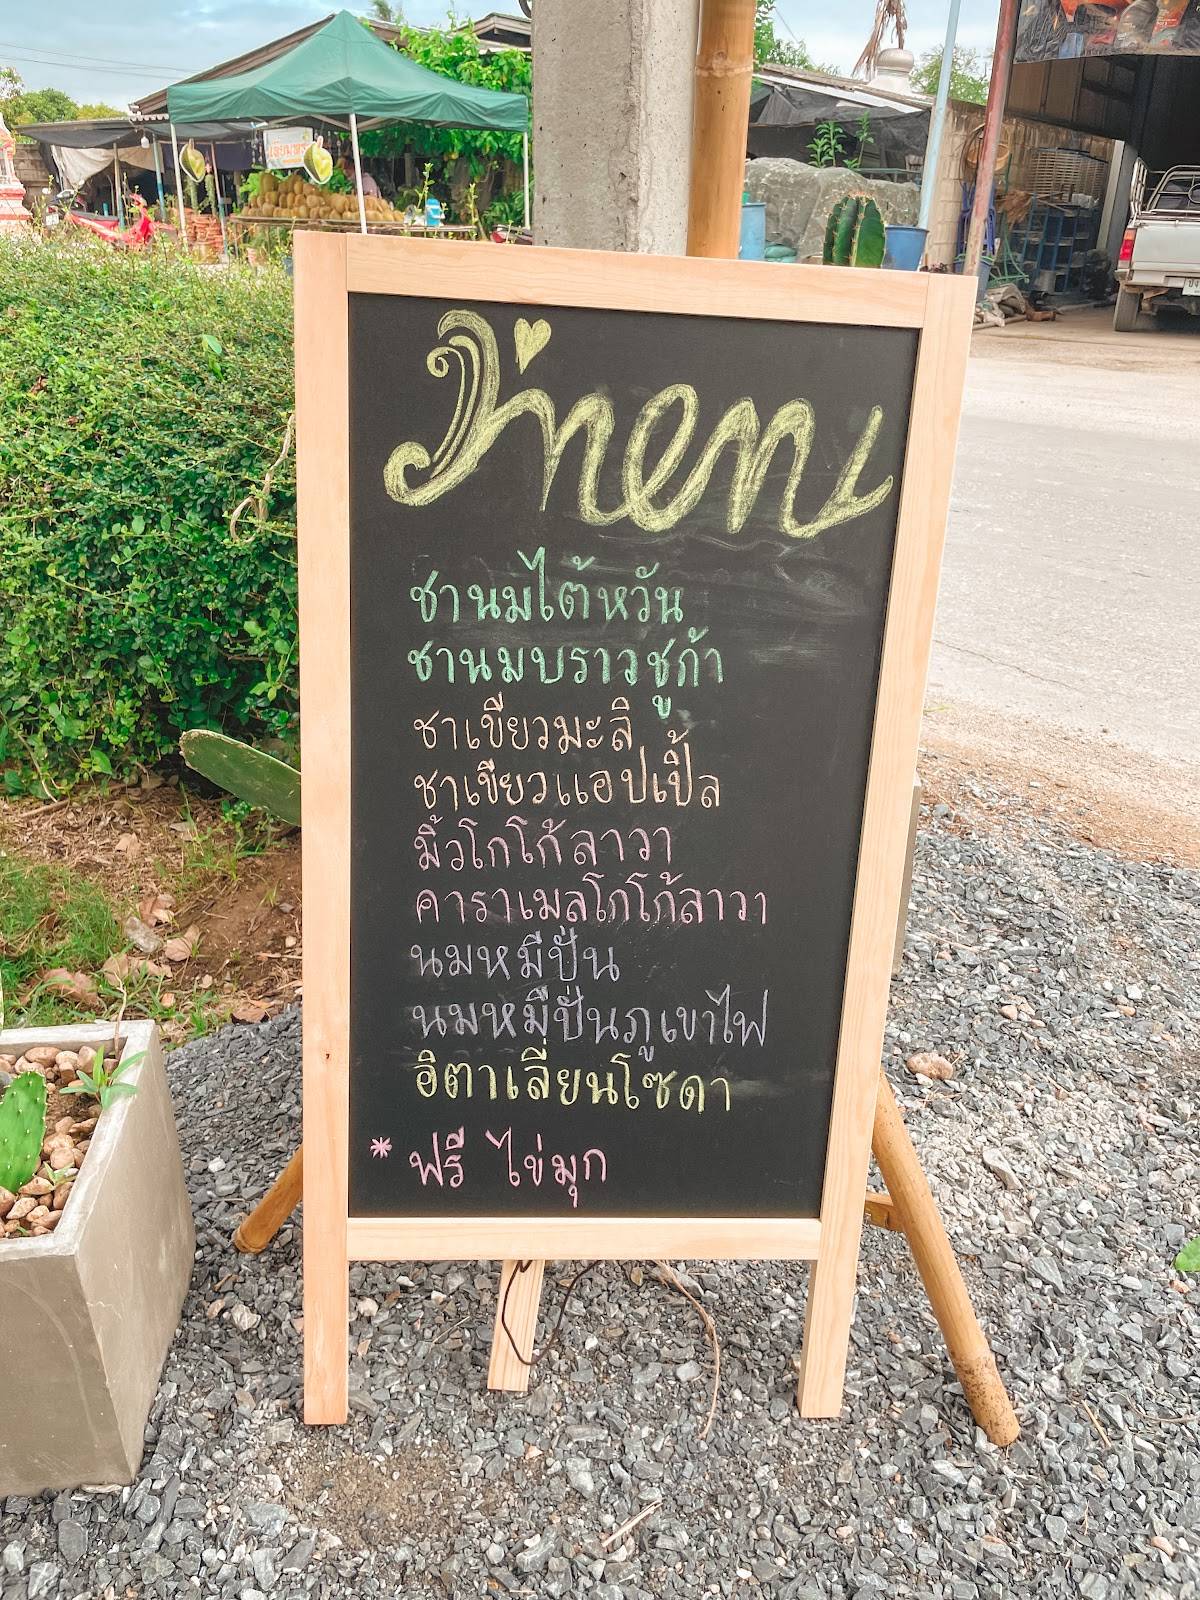 menu
ชานมไต้หวัน
ชานมบราวชูก้า
ชาเขียวมะลิ
ชาเขียวแอปเปิ้ล
มิ้วโกโก้ลาวา
คาราเมลโกโก้ลาวา
นมหมีปั่น
นมหมีปั่นภูเขาไฟ
อิตาเลี่ยนโซดา
* ฟรี ไข่มุก